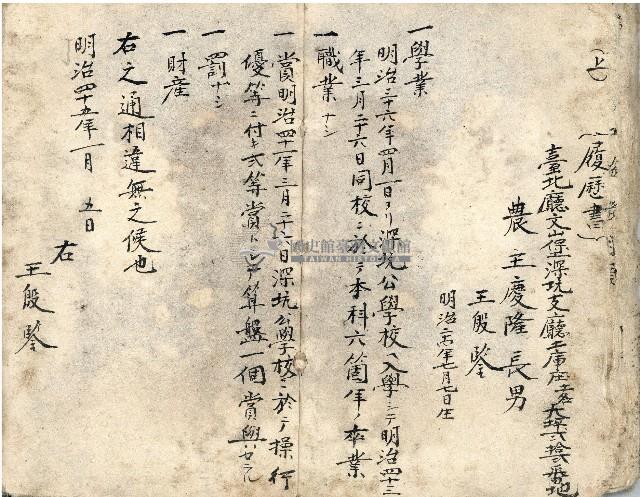 (上)
履歷書
臺北廳文山堡深坑支廳土庫庄土名大坪弍拾弍番地
農 王慶隆長男
王殷鑒
明治二十四年七月七日生
一學業
明治三十六年四月一日ヨリ深坑公學校ヘ入學シテ明治四十三
年三月二十六日同校ニ於テ本科六箇年ノ卒業
一職業 ナシ
一賞明治四十一年三月二十 日深坑公學校ニ於テ操行
優等ニ付キ弍等賞トシテ算盤一個賞與サル
一罰ナシ
一財産
右之通相違無之候也
明治四十五年一月 五日
右
王殷鑒
國史館臺灣文獻館
TAIWAN HISTORICA